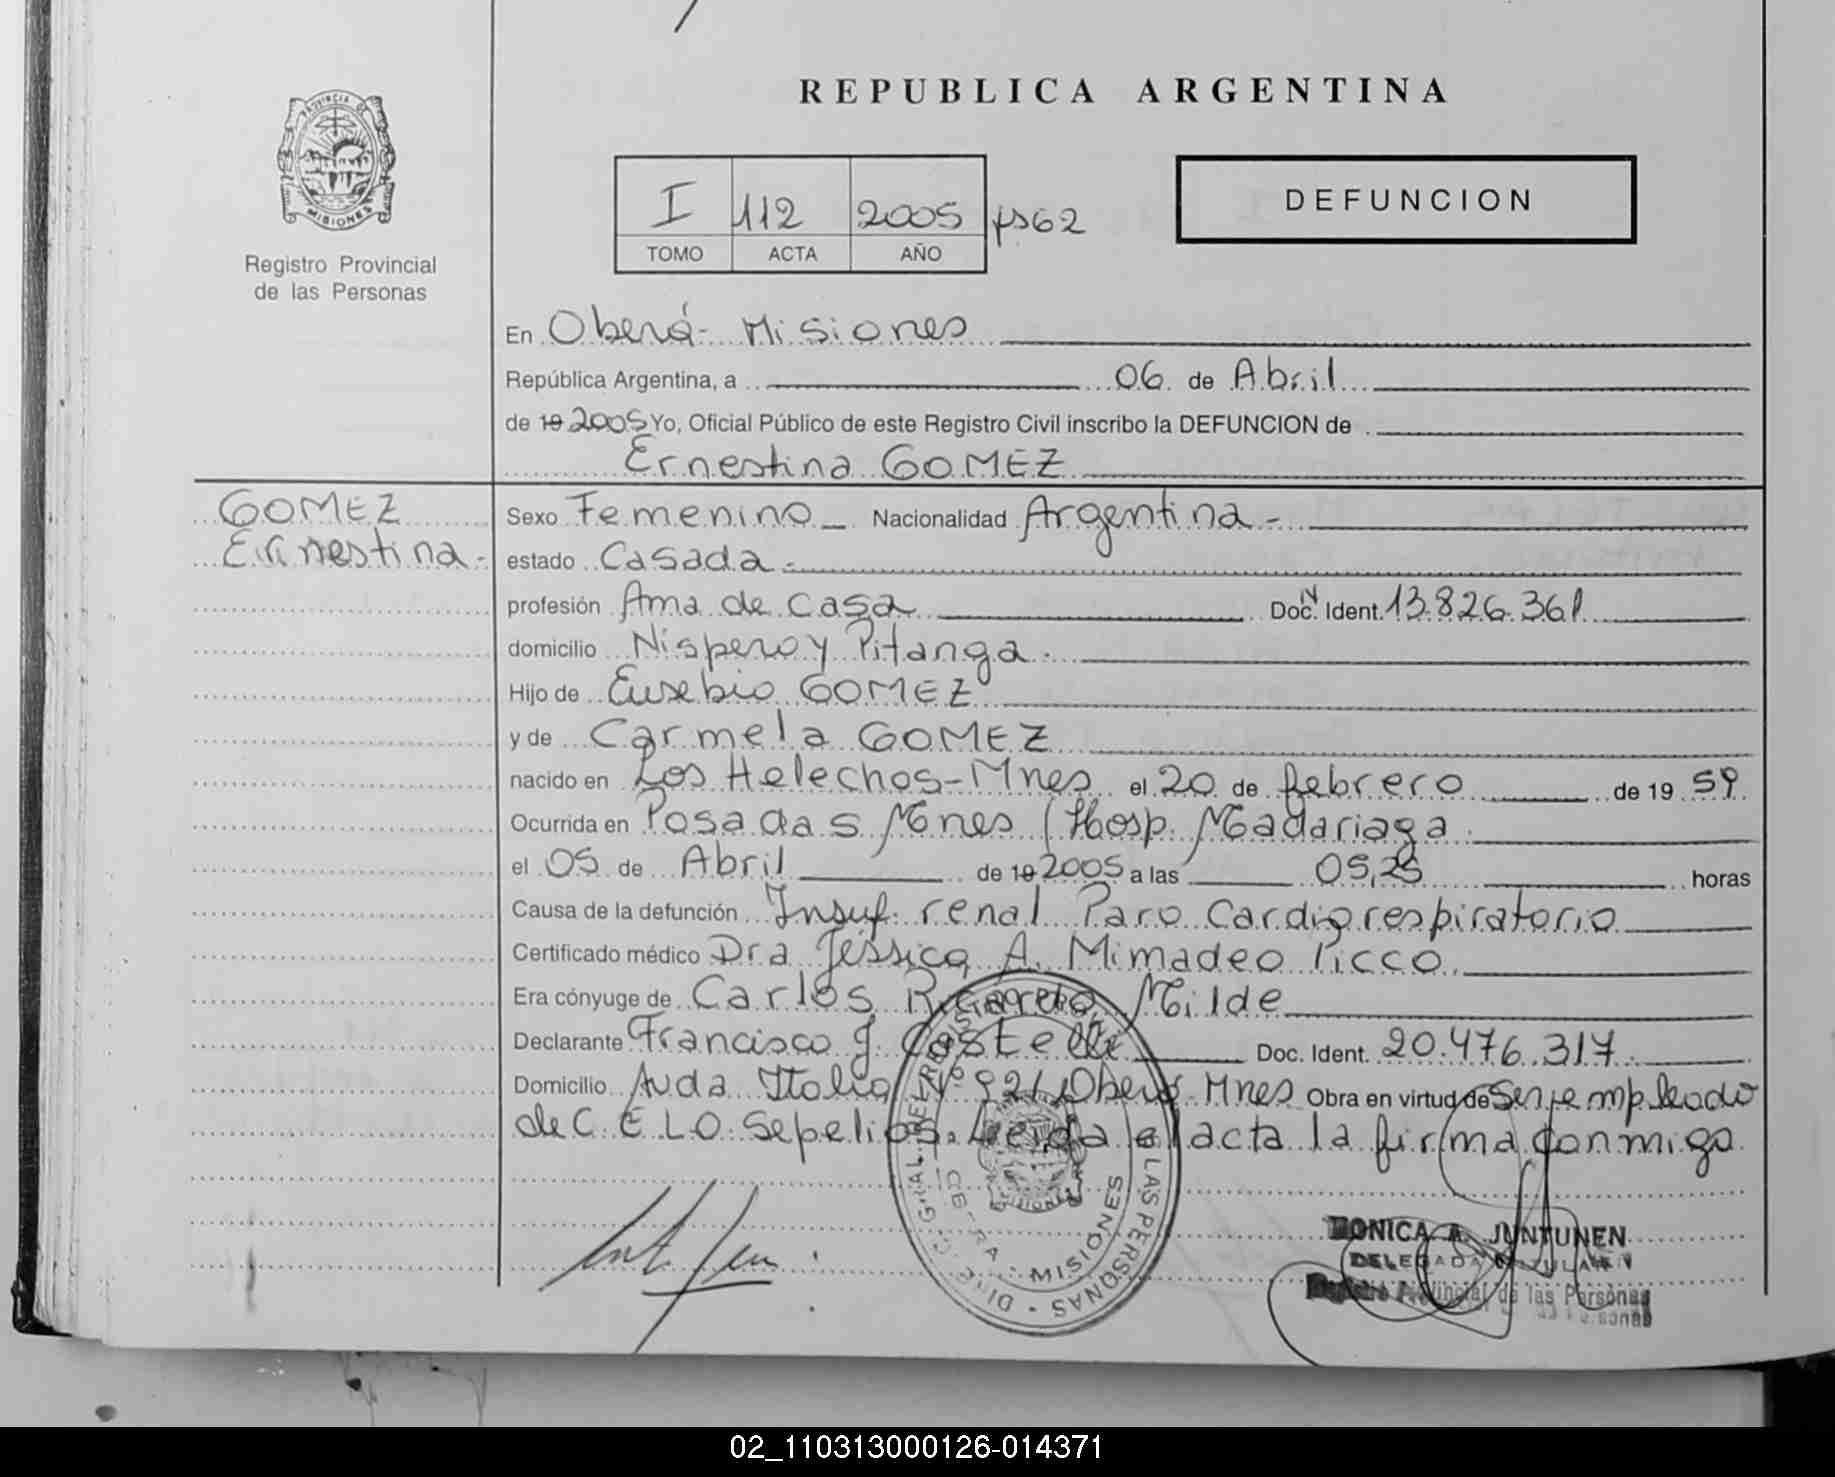 REPUBLICA ARGENTINA
PROVINCIA DE
MISIONES
Registro Provincial
de las Personas
I 112 2005 fs 62
TOMO ACTA AÑO
DEFUNCION
En Oberá - Misiones
República Argentina, a 06 de Abril
de 19 2005 Yo, Oficial Público de este Registro Civil inscribo la DEFUNCION de
Ernestina GOMEZ
GOMEZ
Ernestina -
Sexo Femenino - Nacionalidad Argentina -
estado Casada -
profesión Ama de Casa Doc. N Ident. 13.826.361
domicilio Nispero y Pitanga.
Hijo de Eusebio GOMEZ
y de Carmela GOMEZ
nacido en Los Helechos - Mnes el 20 de febrero de 19 59
Ocurrida en Posadas Mnes ( Hosp. Madariaga.
el 05 de Abril de 19 2005 a las 05,25 horas
Causa de la defunción Insuf. renal Paro Cardiorespiratorio
Certificado médico Dra Jéssica A. Mimadeo Picco.
Era cónyuge de Carlos Ricardo Milde
Declarante Francisco J. Doc. Ident. 20.476.317.
Domicilio Avda Italia Nº 921 Oberá - Mnes Obra en virtud de Ser empleado
de C.E.L.O. Sepelios. Leida el acta la firma conmigo
LAS PERSONAS
MISIONES
MONICA A. JUNTUNEN
DELEGADA TITULAR
Registro Provincial de las Personas
02_110313000126-014371